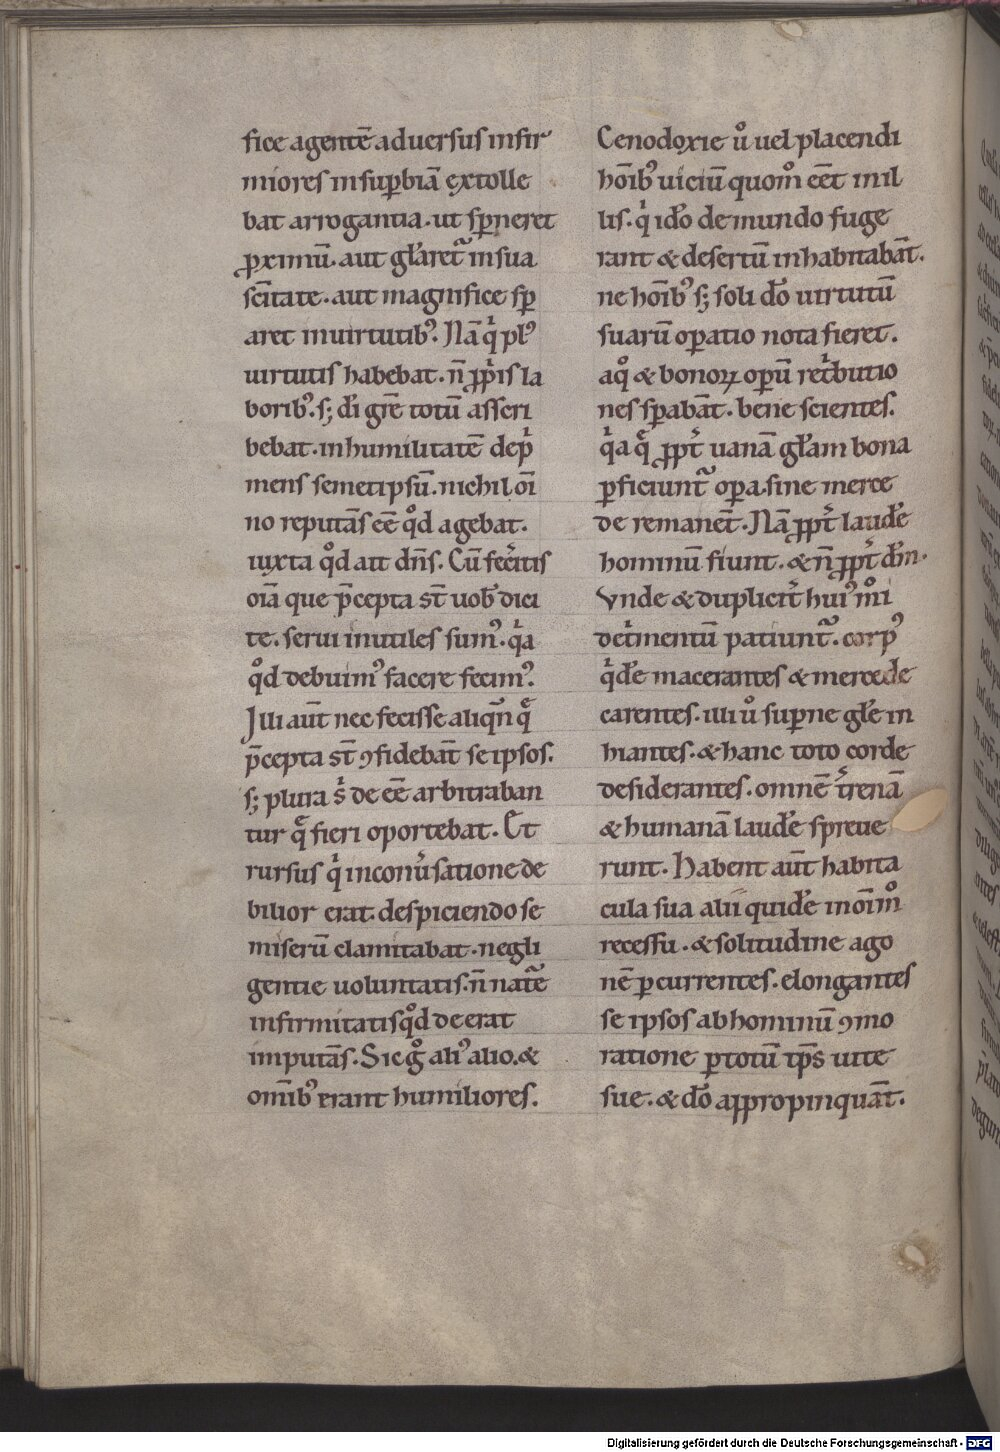 fice agentē adversus infir
miores insuꝑbiā extolle
bat arrogantia. ut sꝑneret
ꝓximū. aut gl̄aret᷑ insua
sc̄itate. aut magnifice sꝑ
aret inuirtutib᷒. Nā qͥ pl᷒
uirtutis habebat. n̄ ꝓpͥis la
borib᷒. s; dī gr̄e totū asseri
bebat. inhumilitatē dep̄ͥ
mens semetipsū. nichil oī
no reputās eē qͦd agebat.
iuxta qͦd ait dn̄s. Cū fec̄itis
oīa que p̄cepta st̄ uob̄ dici
te. serui inutiles sum᷒. qͥa
qͦd debuim᷒ facere fecim᷒.
Illi aūt nec fecisse aliqn̄ qͣ
p̄cepta st̄ ꝯfidebāt se ipsos.
s; plura sͥ de eē arbitraban
tur qͣ fieri oportebat. Et
rursus qͥ inconuͥsatione de
bilior erat. despiciendo se
miserū clamitabat. negli
gentie uoluntatis. n̄ natᷓe
infirmitatis qͦd deerat
imputās. Sic gͦ ali᷒ alio. &
om̄ib᷒ erant humiliores.
Cenodoxie uͦ uel placendi
hōib᷒ uiciū quomͦ eēt inil
lis. qͥ idō de mundo fuge
rant & desertū inhabitabāt.
ne hōib᷒ s; soli dō uirtutū
suarū oꝑatio nota fieret.
aqͦ & bonoꝝ oꝑū ret̄ͥbutio
nes sꝑabāt. bene scientes.
qͥa qͣ ꝓpt̄ uanā gl̄am bona
ꝑficiunt᷑ oꝑa. sine merce
de remanēt. Nā ꝓpt̄ laud̄e
hominū fiunt. & n̄ ꝓpt̄ dm̄.
Vnde & duplicit̄ hui᷒mͦi
det̄ͥmentū patiunt᷑. corp᷒
qͥd̄e macerantes & mercede
carentes. illi uͦ suꝑne gl̄e in
hiantes. & hanc toto corde
desiderantes. omnē t̄renā
& humanā laud̄e spreue
runt. Habent aūt habita
cula sua alii quid̄e inoīmͦ
recessu. & solitudine ago
nē ꝑcurrentes. elongantes
se ipsos ab hominū ꝯmo
ratione ꝑ totū tp̄s uite
sue. & dō appropinquāt.
Digitalisierung gefördert durch die Deutsche Forschungsgemeinschaft - DFG